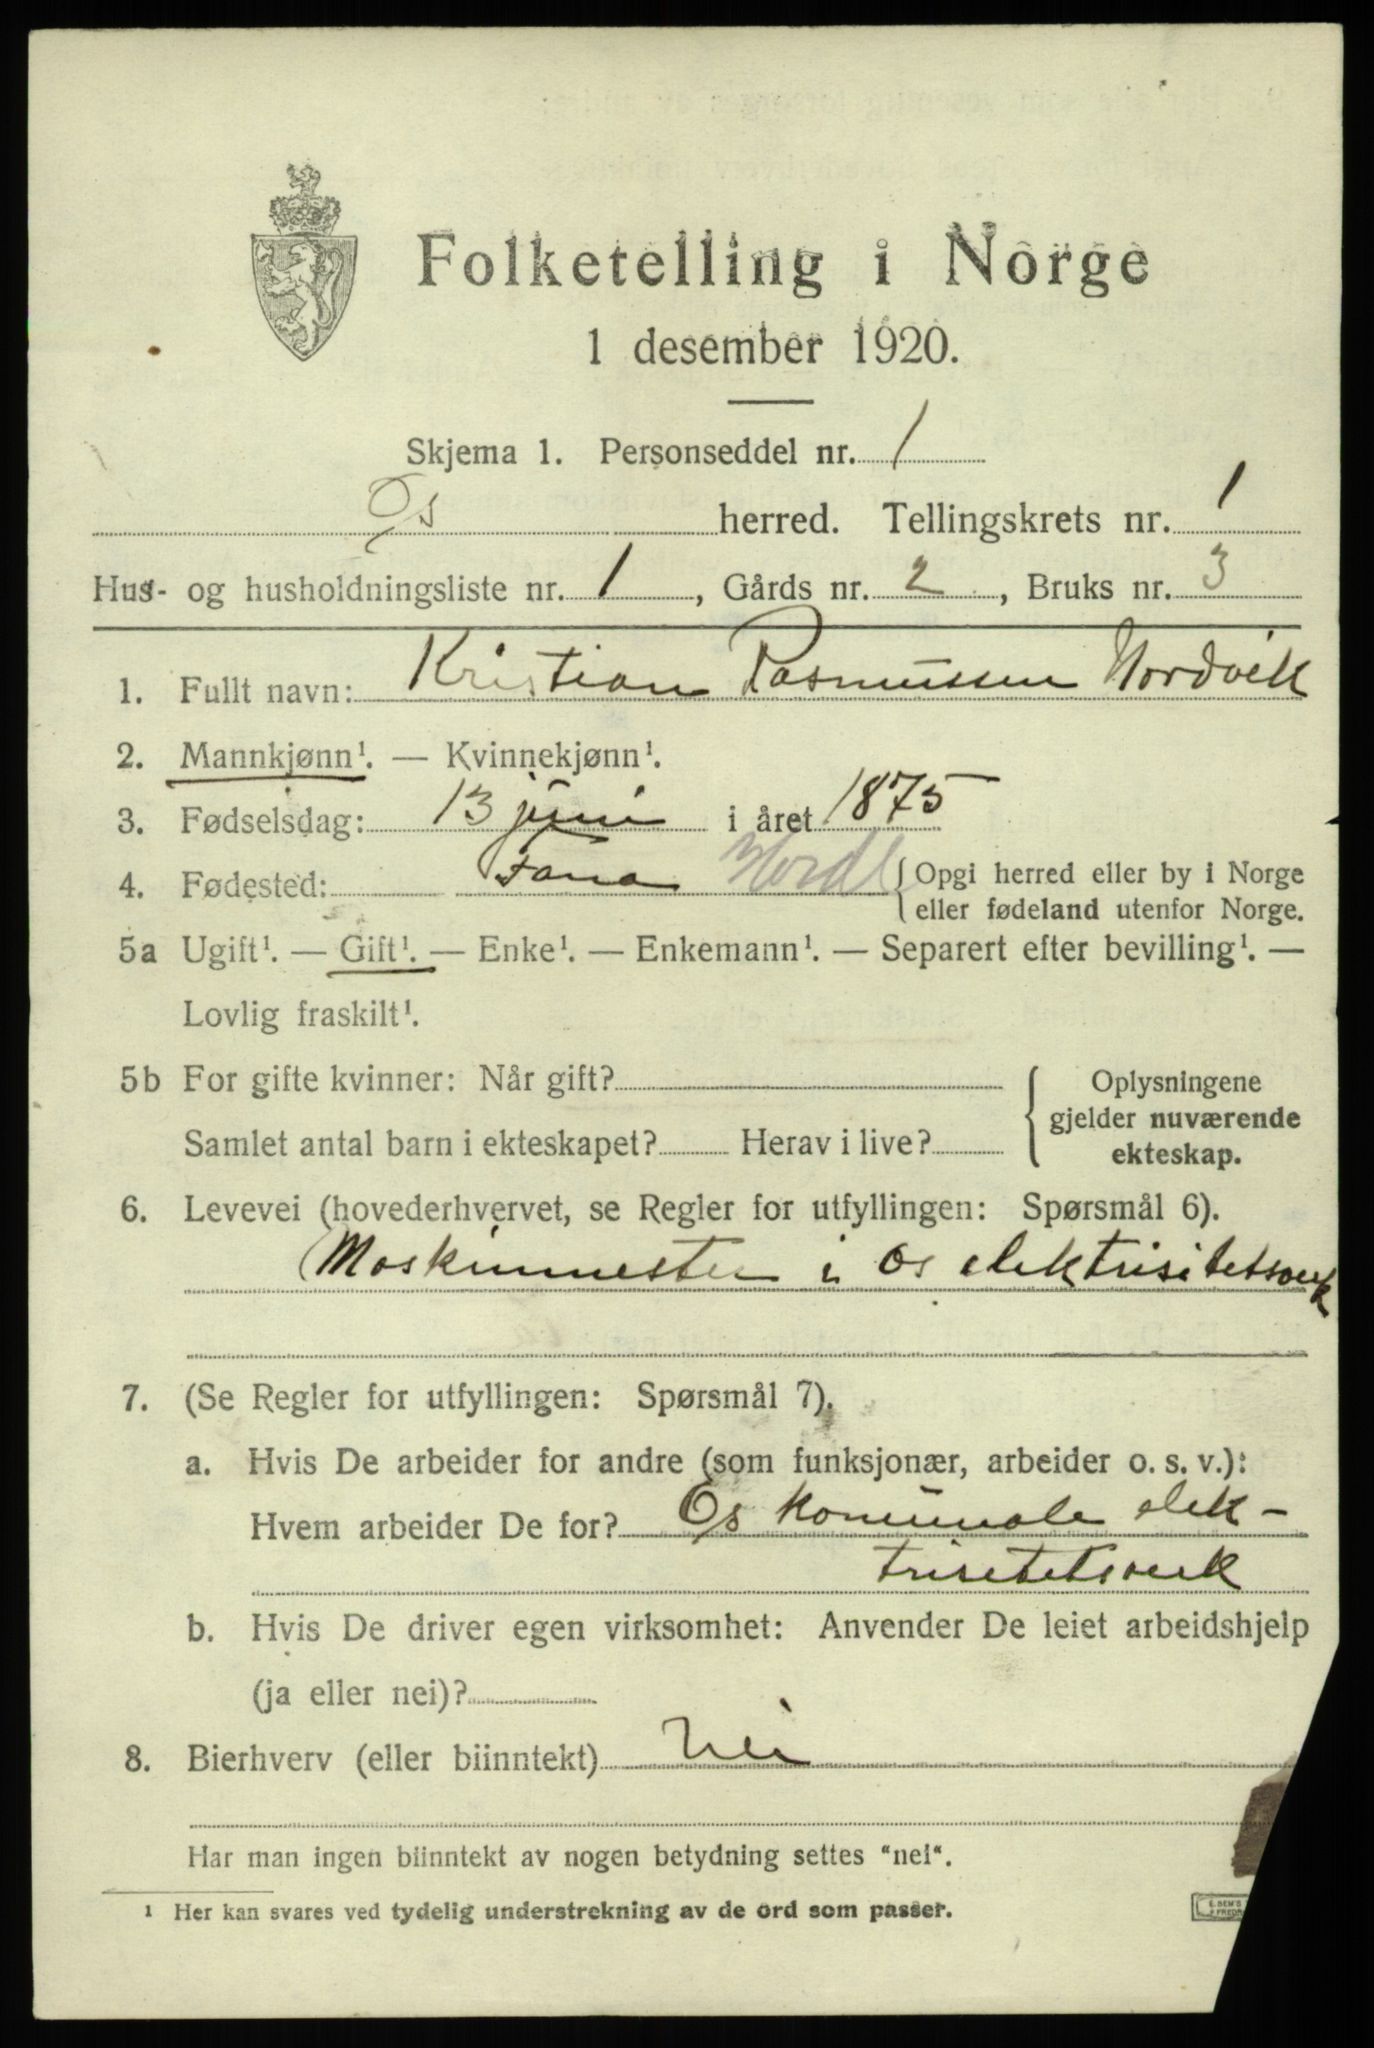 Folketelling i Norge
1 desember 1920.
Skjema 1. Personseddel nr. 1
Os herred. Tellingskrets nr. 1
Hus- og husholdningsliste nr. 1, Gårds nr. 2, Bruks nr. 3
1. Fullt navn: Kristian Rasmussen Nordvik
2. Mannkjønn¹. — Kvinnekjønn¹.
3. Fødselsdag: 13 juni i året 1875
4. Fødested: Fana Hordl { Opgi herred eller by i Norge
eller fødeland utenfor Norge.
5a Ugift¹. — Gift¹. — Enke¹. — Enkemann¹. — Separert efter bevilling¹. —
Lovlig fraskilt¹.
5b For gifte kvinner: Når gift? { Oplysningene
gjelder nuværende
Samlet antal barn i ekteskapet? Herav i live?
ekteskap.
6. Levevei (hovederhvervet, se Regler for utfyllingen: Spørsmål 6).
Maskinmester i Os elektrisitetsverk
7. (Se Regler for utfyllingen: Spørsmål 7).
a. Hvis De arbeider for andre (som funksjonær, arbeider o. s. v.):
Hvem arbeider De for? Os komunale elek-
trisitetsverk
b. Hvis De driver egen virksomhet: Anvender De leiet arbeidshjelp
(ja eller nei)?
8. Bierhverv (eller biinntekt) Nei
Har man ingen biinntekt av nogen betydning settes "nei".
¹ Her kan svares ved tydelig understrekning av de ord som passer.